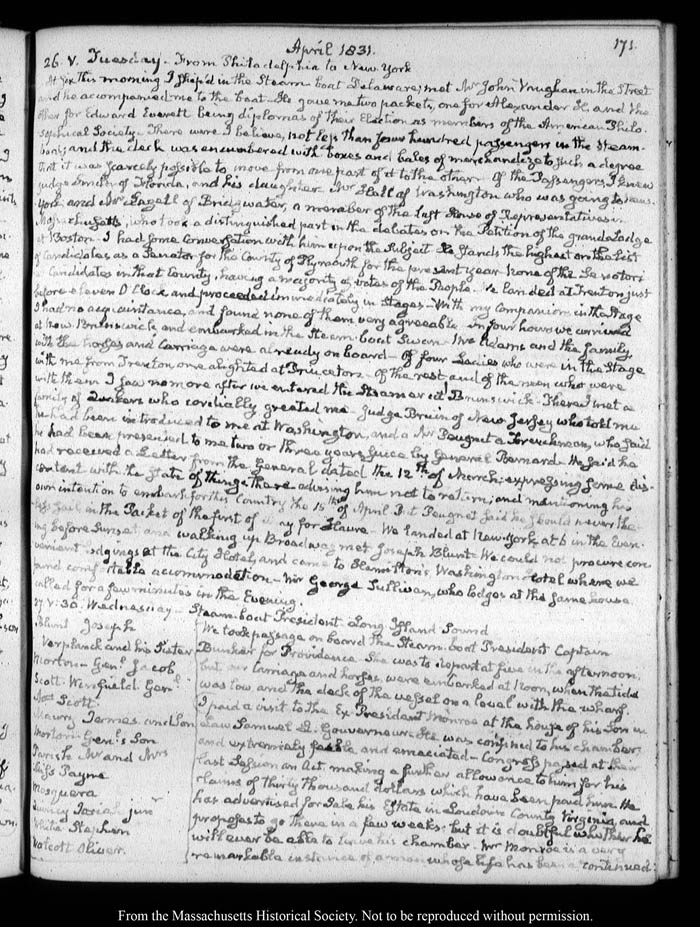 April 1831.
171.
26. V. Tuesday - From Philadelphia to New York
At six this morning I stepp'd in the Steam-boat Delaware; met Mr John Vaughan in the Street
and he accompanied me to the boat - He gave me two packets, one for Alexander H. and the
other for Edward Everett being diplomas of their Election as members of the American Philo-
sophical Society - There were I believe, not less than four hundred passengers in the steam-
boat; and the deck was encumbered with boxes and bales of merchandize to such a degree
that it was scarcely possible to move from one part of it to the other - Of the Passengers, I knew
Judge Smith of Florida, and his daughter. Mr Hall of Washington who was going to New-
York and Mr of Bridgwater, a member of the last House of Representatives in
Massachusetts, who took a distinguished part in the debates on the Petition of the grand Lodge
at Boston - I had some conversation with him upon the subject He stands the highest on the List
of Candidates as a Senator for the County of Plymouth for the present year none of the Senatori-
al Candidates in that County, having a majority of votes of the People. We landed at Trenton just
before eleven O'Clock and proceeded immediately in Stages - With my Companions in the Stage
I had no acquaintance, and found none of them very agreeable - in four hours we arrived
at New Brunswick and embarked in the Steam-boat Swan - Mrs Adams and the family,
with the horses and Carriage were already on board - Of four Ladies who were in the Stage
with me from Trenton, one alighted at Princeton - Of the rest and of the men who were
with them I saw no more after we entered the Steamer at Brunswick - There I met a
family of Quakers who cordially greeted me - Judge Bruin of New Jersey who told me
he had been introduced to me at Washington, and a Mr Peugnet a Frenchman, who said
he had been presented to me two or three years since by General Bernard - He said he
had received a Letter from the General dated the 12th of March; expressing some dis-
content with the state of things there advising him not to return; and mentioning his
own intention to embark for this Country the 15th of April But Peugnet said he should never the-
less sail in the Packet of the first of May for Havre - We landed at New York, at 6 in the Even-
ing before Sunset and walking up Broadway met Joseph Blunt - We could not procure con-
venient lodgings at the City Hotel, and came to Washington Hotel where we
found comfortable accommodation - Mr George Sullivan, who lodges at the same house,
called for a few minutes in the Evening.
27. V. 30. Wednesday - Steam-boat President. Long-Island Sound
Blunt Joseph
Verplanck and his Sister
Morton - Genl Jacob
Scott. Winfield Genl
Mrs Scott.
Maury James and Son
Morton Genl's Son
Parish Mr and Mrs
Miss Payne
Mosquera
Josiah junr
White Stephen
Wolcott Oliver.
We took passage on board the Steam-boat President Captain
Bunker for Providence - She was to depart at five in the afternoon,
but our Carriage and horses, were embarked at Noon, when the tide
was low and the deck of the vessel on a level with the wharf.
I paid a visit to the Ex-President Monroe at the house of his Son in
Law Samuel L. Gouverneur. He was confined to his chamber,
and extremely feeble and emaciated - Congress passed at their
last Session an Act making a further allowance to him for his
claims of thirty thousand dollars which have been paid him. He
has advertised for Sale, his Estate in Loudoun County Virginia, and
proposes to go there in a few weeks; but it is doubtful whether he
will ever be able to leave his chamber. Mr Monroe is a very
remarkable instance of a man whose life has been a continued
From the Massachusetts Historical Society. Not to be reproduced without permission.